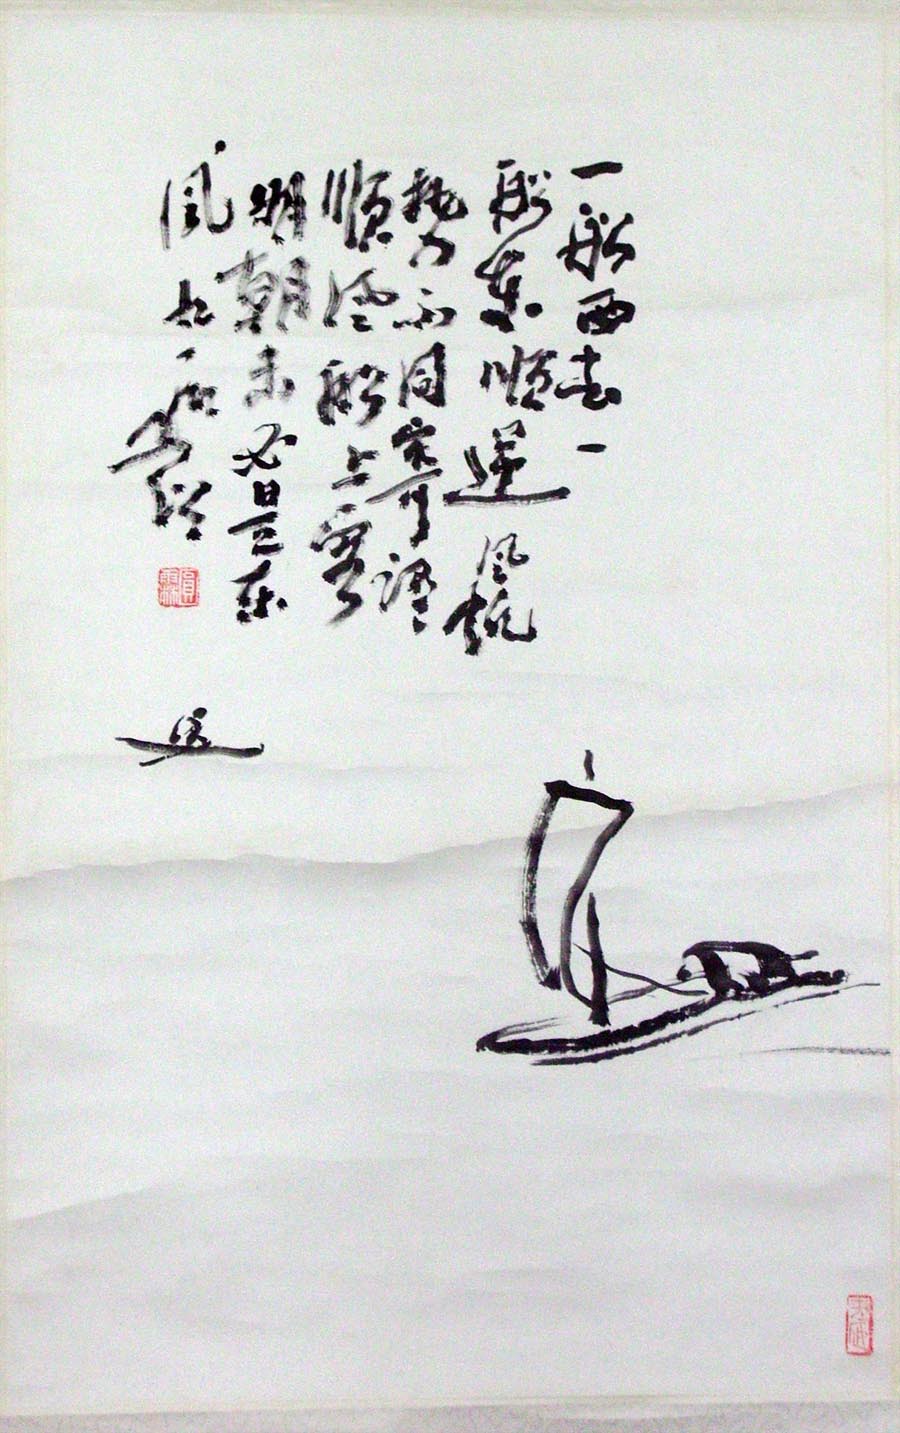 一船西去一
船東順逆風帆
勢不同寄語
順風船上客
明朝未必是東
風
圓霖